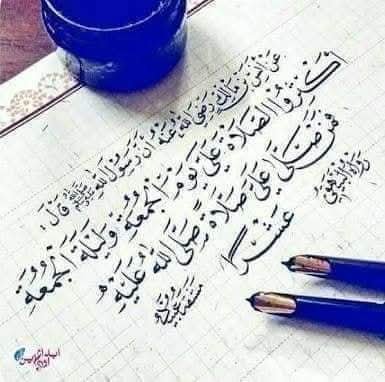 عَنْ أَنَسِ بْنِ مَالِكٍ رَضِيَ اللهُ عَنْهُ أَنَّ رَسُولَ اللهِ ﷺ قَالَ
أَكْثِرُوا الصَّلَاةَ عَلَيَّ يَوْمَ الْجُمُعَةِ وَلَيْلَةَ الْجُمُعَةِ
فَمَنْ صَلَّى عَلَيَّ صَلَاةً صَلَّى اللهُ عَلَيْهِ
عَشْرًا
رواه البيهقي